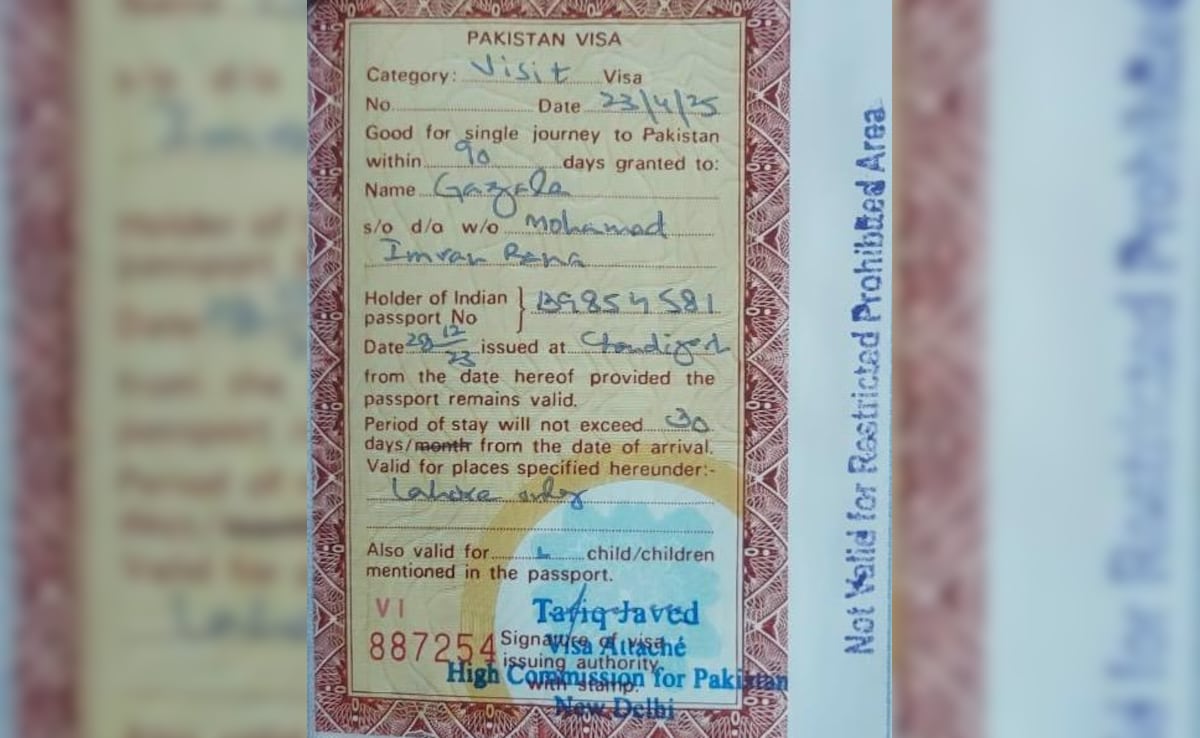 PAKISTAN VISA
Category: Visit Visa
No. Date 23/4/25
Good for single journey to Pakistan
within 90 days granted to:
Name Gazala
s/o d/o w/o Mohamad
Imran Rana
Holder of Indian
passport No } B9854581
Date 28 12/23 issued at Chandigarh
from the date hereof provided the
passport remains valid.
Period of stay will not exceed 30
days/month from the date of arrival.
Valid for places specified hereunder:-
Lahore only
Also valid for child/children
mentioned in the passport.
VI
887254
Signature of visa
issuing authority
with stamp.
Tafiq Javed
Visa Attaché
High Commission for Pakistan
New Delhi
Not Valid for Restricted Prohibited Area